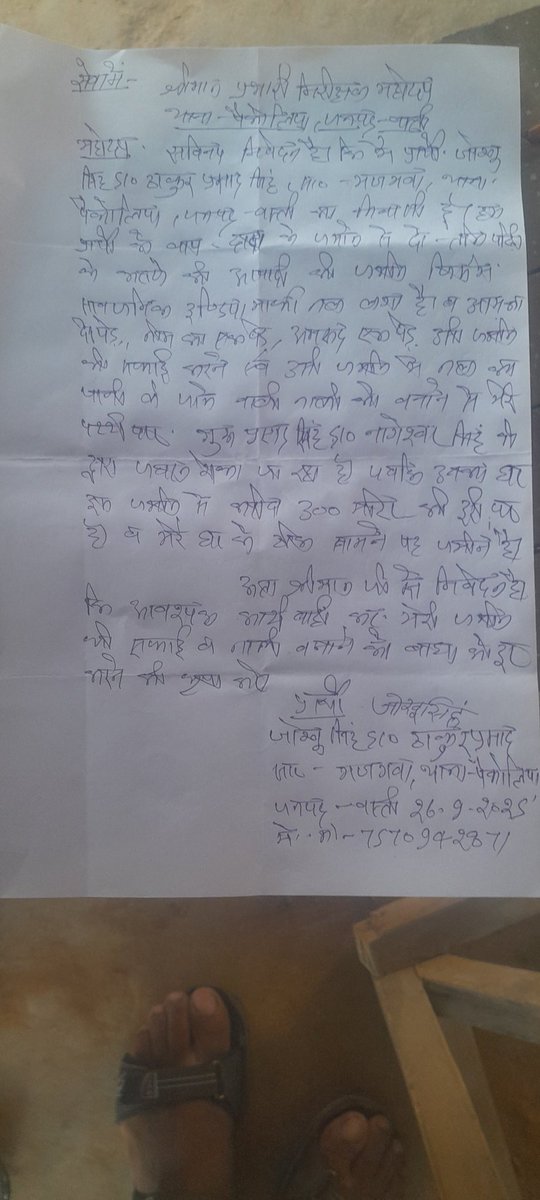 सेवा में-
श्रीमान प्रभारी निरीक्षक महोदय
थाना-पैकोलिया, जनपद-बस्ती
महोदय. सविनय निवेदन है। कि मै प्रार्थी. जोखू
सिंह S/o ठाकुर प्रसाद सिंह, ग्रा०-गजगवां, थाना.
पैकोलिया, जनपद-बस्ती का निवासी है
प्रार्थी के बाप-दादा के जमाने से दो-तीन पीढ़ी
के की आबादी की जमीन जिसमें
सार्वजनिक इण्डिया मार्का नल लगा है। व आम का
दो पेड़, नीम का एक पेड़, अमरूद एक पेड़. उसी जमीन
की सफाई करने एवं उसी जमीन में नल का
पानी के वाली नाली को बनाने में मेरे
गुरु प्रसाद सिंह S/o नागेश्वर सिंह के
द्वारा जबरन रोका जा रहा है। जबकि उनका घर
इस जमीन से करीब 300 मीटर की दूरी पर
है। व मेरे घर के ठीक सामने यह जमीन है।
अतः श्रीमान जी से निवेदन है।
कि आवश्यक कार्यवाही कर मेरी जमीन
की सफाई व नाली बनाने की बाधा को दूर
करने की कृपा करें
प्रार्थी जोखू सिंह
जोखू सिंह S/o ठाकुर प्रसाद
ग्रा०-गजगवां, थाना-पैकोलिया
जनपद-बस्ती 26.9.2025
मो. नं-7570942871